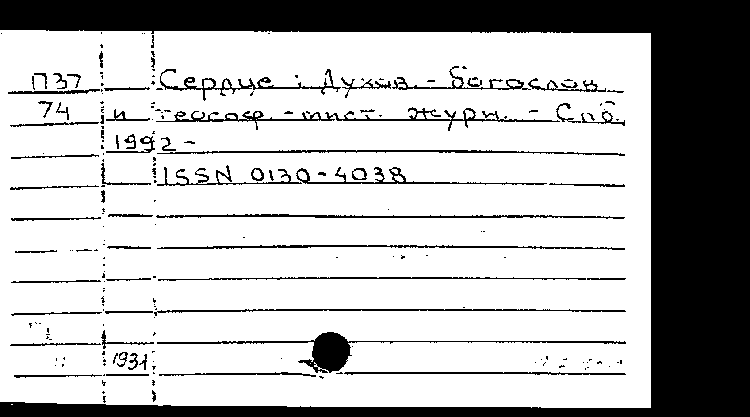 П37 Сердце : Духов. - богослов.
74 и теософ. - мист. журн. - Спб.
1992 -
ISSN 0130-4038
1931